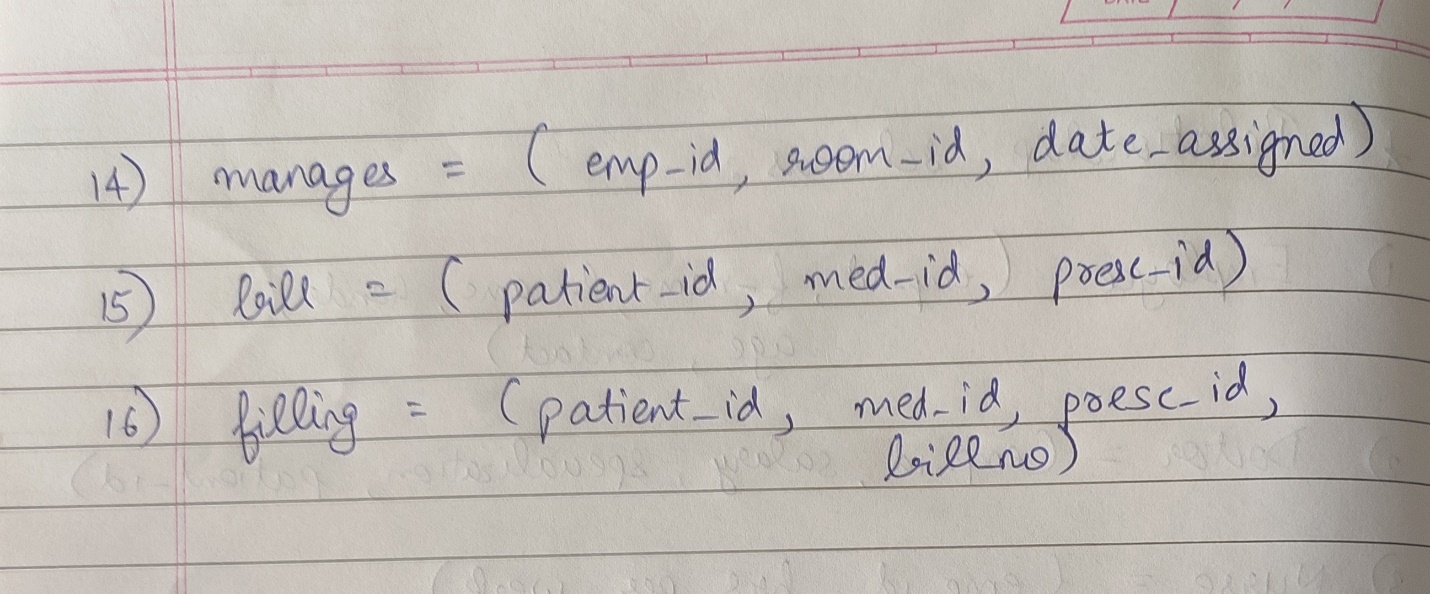 14) manages = ( emp_id, room_id, date_assigned)
15) bill = ( patient_id, med_id, presc_id)
16) filling = ( patient_id, med_id, presc_id,
billno)